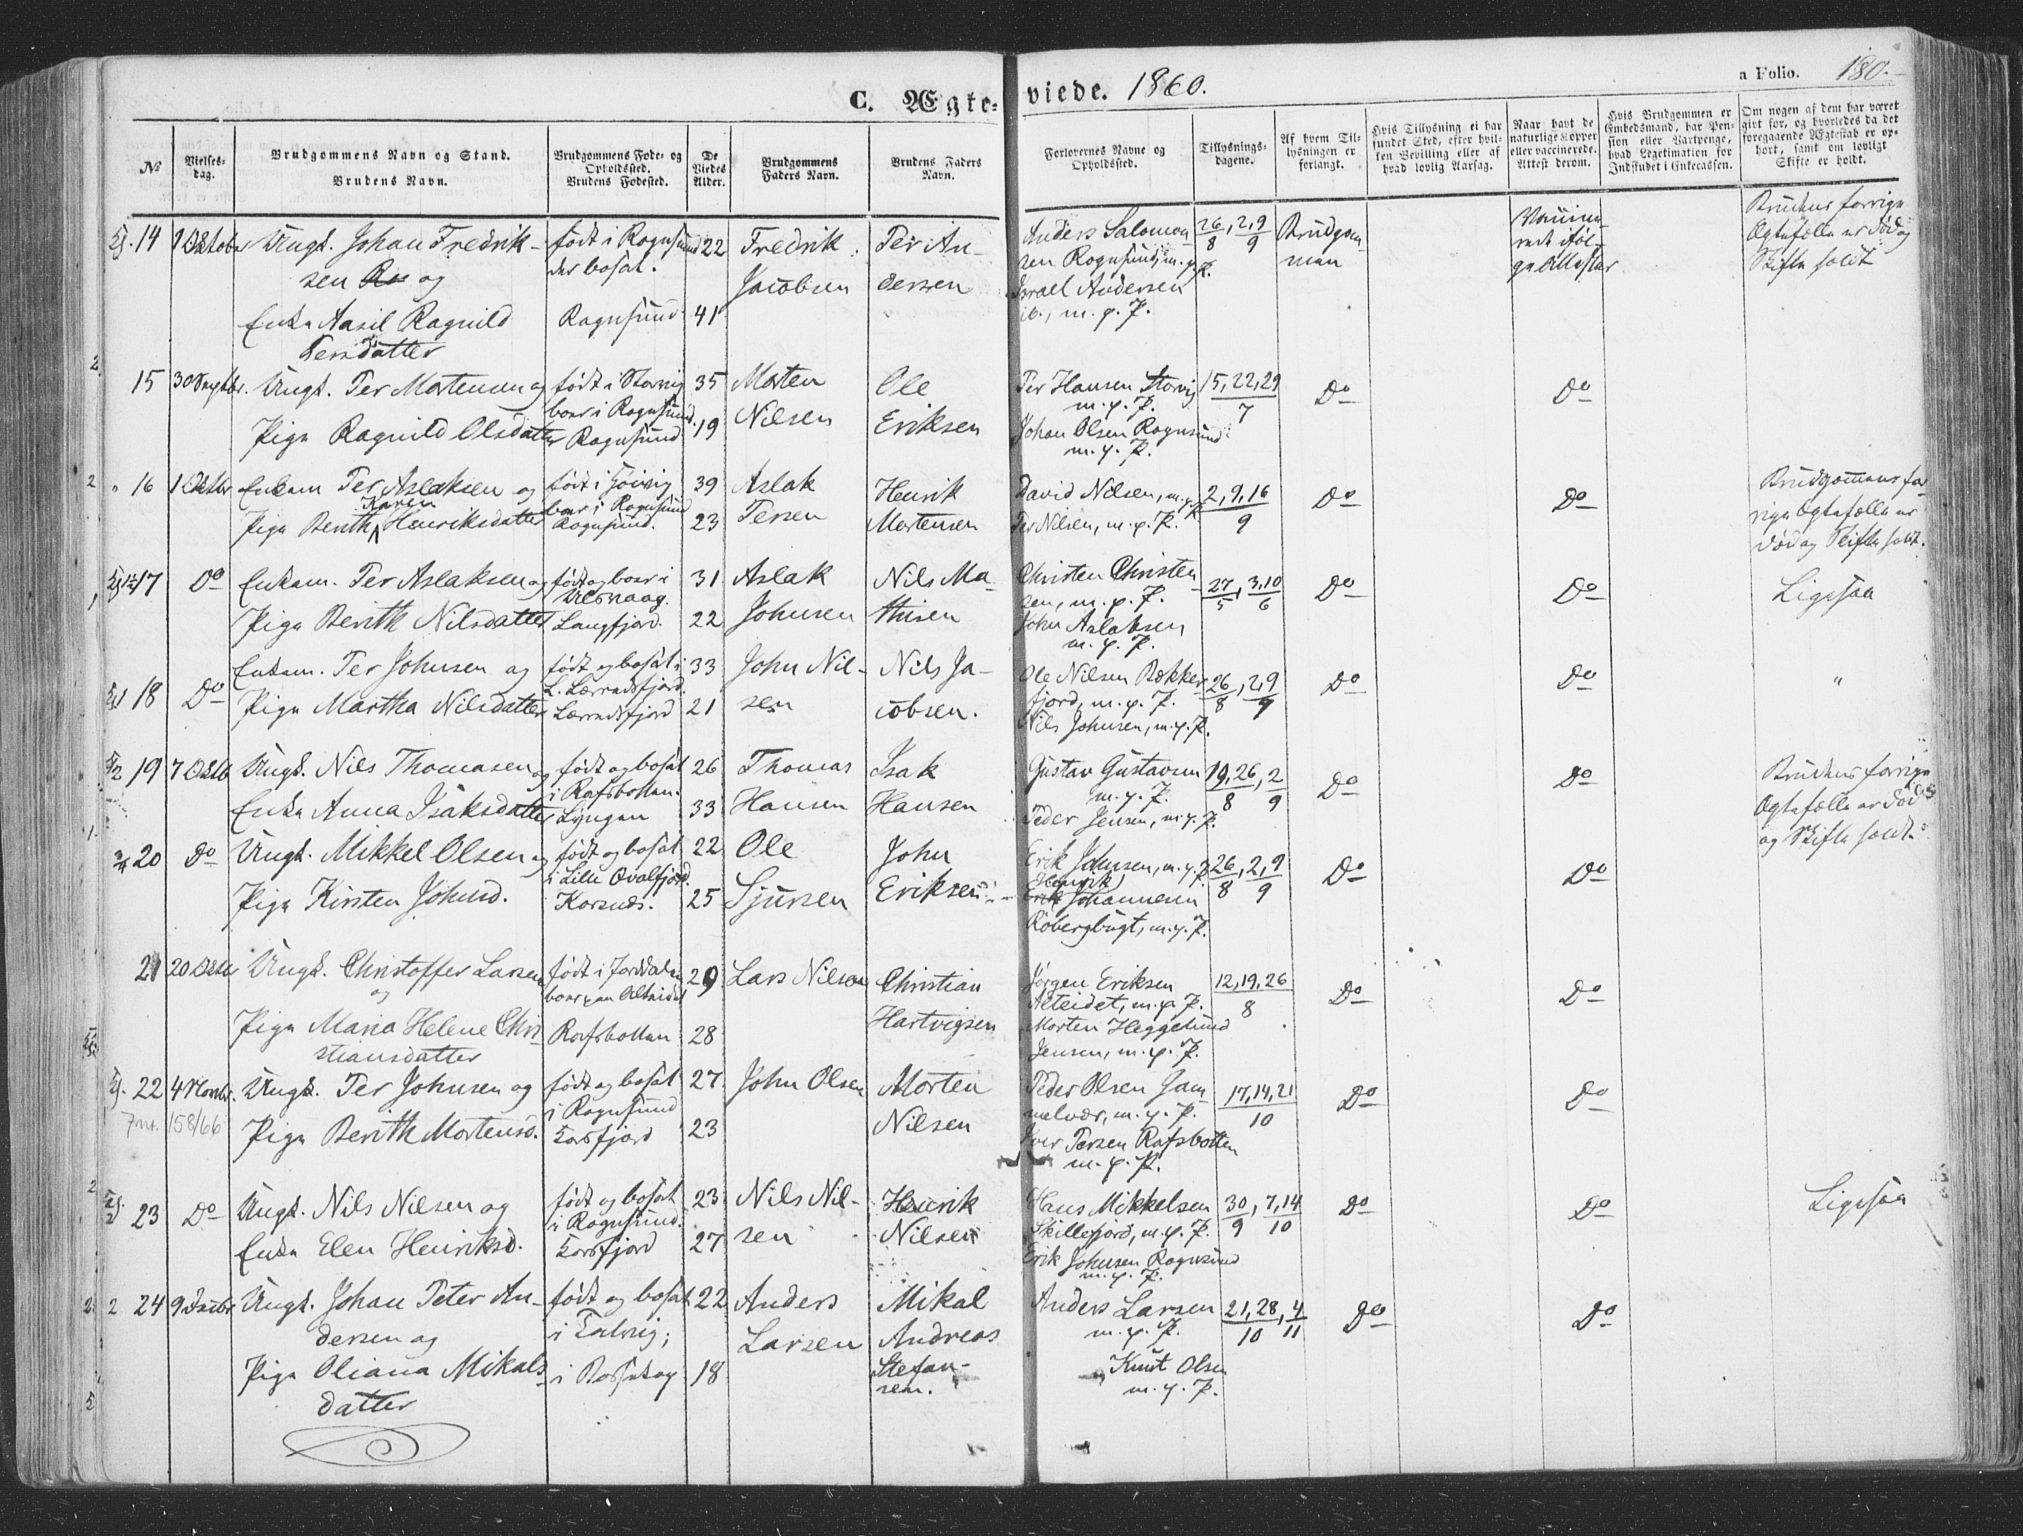 C. Ægte-
viede. 1860.
a Folio. 180.
№
Vielses-
dag.
Brudgommens Navn og Stand.
Brudens Navn.
Brudgommens Føde- og
Opholdssted.
Brudens Fødested.
De
Viedes
Alder.
Brudgommens
Faders Navn.
Brudens Faders
Navn.
Forlovernes Navne og
Opholdssted.
Tillysnings-
dagene.
Af hvem Til-
lysningen er
forlangt.
Hvis Tillysning ei har
fundet Sted, efter hvil-
ken Bevilling eller af
hvad lovlig Aarsag.
Naar havt de
naturlige Kopper
eller vaccinerede.
Attest derom.
Hvis Brudgommen er
Embedsmand, har Pen-
sion eller Vartpenge,
hvad Legitimation for
Indskudet i Enkecassen.
Om nogen af dem har været
gift før, og hvorledes da det
foregaaende Ægteskab er op-
hørt, samt om lovligt
Skifte er holdt.
14 1 Oktober Ungk. Johan Fredrik-
sen og
Enke Aasil Ragnild
Persdatter
født i Rognsund
der bosat.
Rognsund
22
41
Fredrik
Jacobsen
Per An-
dersen
Anders Salomon-
sen Rognsund, m. p. P.
Israel Andersen
ib., m. p. P.
26/8, 2, 9/9
Brudgom-
men
Vaccine-
rede iføl-
ge Attester
Brudens forrige
Ægtefælle er død og
Skifte holdt
15 30 Septbr. Ungk. Per Mortensen og
Pige Ragnild Olsdatter
født i Storvig
boer i Rognsund
Rognsund
35
19
Morten
Nilsen
Ole
Eriksen
Per Hansen Storvig
m. p. P.
Johan Olsen Rognsund
m. p. P.
15, 22, 29/7
Do
Do
16 1 Oktbr Enkem Per Aslaksen og
Karen
Pige Berith Henriksdatter
boer i Rognsund
Rognsund.
39
23
Aslak
Persen
Henrik
Mortensen
David Nilsen, m. p. P.
Per Nilsen, m. p. P.
2, 9, 16/9
Do
Do
Brudgommens for-
rige Ægtefælle er
død og Skifte holdt.
17 Do Enkem. Per Aslaksen og
Pige Berith Nilsdatter
født og boer i
Langfjord.
31
22
Aslak
Johnsen
Nils Ma-
thisen
Christen Christen-
sen, m. p. P.
John Aslaksen
m. p. P.
27/5, 3, 10/6
Do
Do
Ligesaa
18 Do Enkem. Per Johnsen og
Pige Martha Nilsdatter
født og bosat i
L. Lærredsfjord.
Lærredsfjord
33
21
John Nil-
sen
Nils Ja-
cobsen.
Ole Nilsen Bekker-
fjord, m. p. P.
Nils Johnsen, m. p. P.
26/8, 2, 9/9
Do
Do
"
19 7 Oktb Ungk. Nils Thomasen og
Enke Anna Isaksdatter
født og bosat
i Rafsbotten.
Lyngen
26
33
Thomas
Hansen
Isak
Hansen
Gustav Gustavsen
m. p. P.
Peder Jensen, m. p. P.
19, 26/8, 2/9
Do
Do
Brudens forrige
Ægtefælle er død
og Skifte holdt.
20 Do Ungk. Mikkel Olsen og
Pige Kirsten Johnsd.
født og bosat
i Lille Qvalfjord.
Korsnæs.
22
25
Ole
Sjursen
John
Eriksen
Erik Johnsen, m. p. P.
Henrik
Erik Johannesen
Røbergbugt, m. p. P.
26/8, 2, 9/9
Do
Do
21 20 Oktbr Ungk. Christoffer Larsen
og
Pige Maria Helene Chri-
stiansdatter
født i Jorddalen
boer paa Alteidet
Rafsbotten
29
28
Lars Nilsen
Christian
Hartvigsen
Jørgen Eriksen
Alteidet, m. p. P.
Morten Heggelund
Jensen, m. p. P.
12, 19, 26/8
Do
Do
22 4 Novbr. Ungk. Per Johnsen og
158/66
Pige Berith Mortensd.
født og bosat
i Rognsund
Korsfjord
27
23
John Olsen
Morten
Nilsen
Peder Olsen Gam-
melvær, m. p. P.
Iver Persen Rafsbotten
m. p. P.
17, 14, 21/10
Do
Do
23 Do Ungk. Nils Nilsen og
Enke Elen Henriksd.
født og bosat
i Rognsund.
Korsfjord
23
27
Nils Nil-
sen
Henrik
Nilsen
Hans Mikkelsen
Skillefjord, m. p. P.
Erik Johnsen Rognsund
m. p. P.
30/9, 7, 14/10
Do
Do
Ligesaa
24 9 Decbr Ungk. Johan Peter An-
dersen og
Pige Oliana Mikals-
datter
født og bosat
i Talvig;
22
18
Anders
Larsen
Mikal
Andreas
Stefan-
sen.
Anders Larsen
m. p. P.
Knut Olsen
m. p. P.
21, 28/10, 4/11
Do
Do